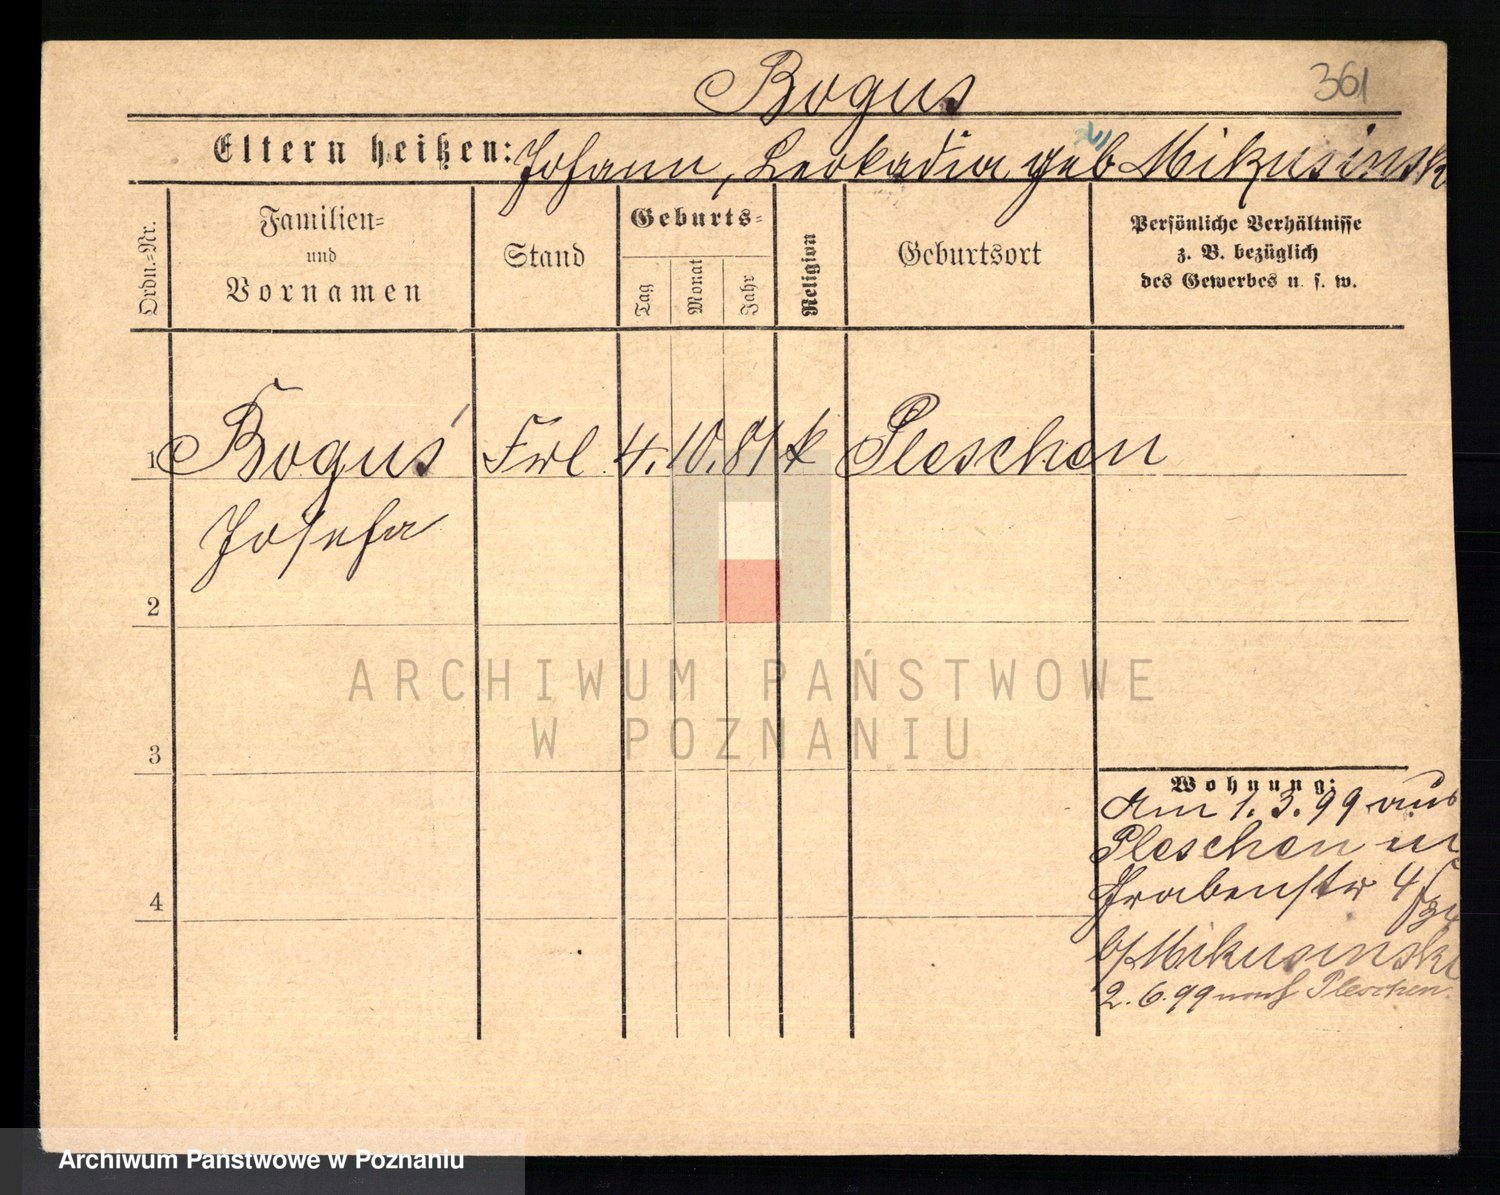 Bogus
361
Eltern heißen: Johann, Leokadia geb Mikusinsk
Ordn.-Nr.
Familien-
und
Vornamen
Stand
Geburts-
Tag
Monat
Jahr
Religion
Geburtsort
Persönliche Verhältnisse
z. B. bezüglich
des Gewerbes u. s. w.
1 Boguś Frl 4. 10. 81 k Pleschen
Josefa
2
ARCHIWUM PAŃSTWOWE
W POZNANIU
3
Wohnung:
Am 1. 3. 99 aus
Pleschen in
Grabenstr 4
4
b/Mikusinski
2. 6. 99 nach Pleschen.
Archiwum Państwowe w Poznaniu